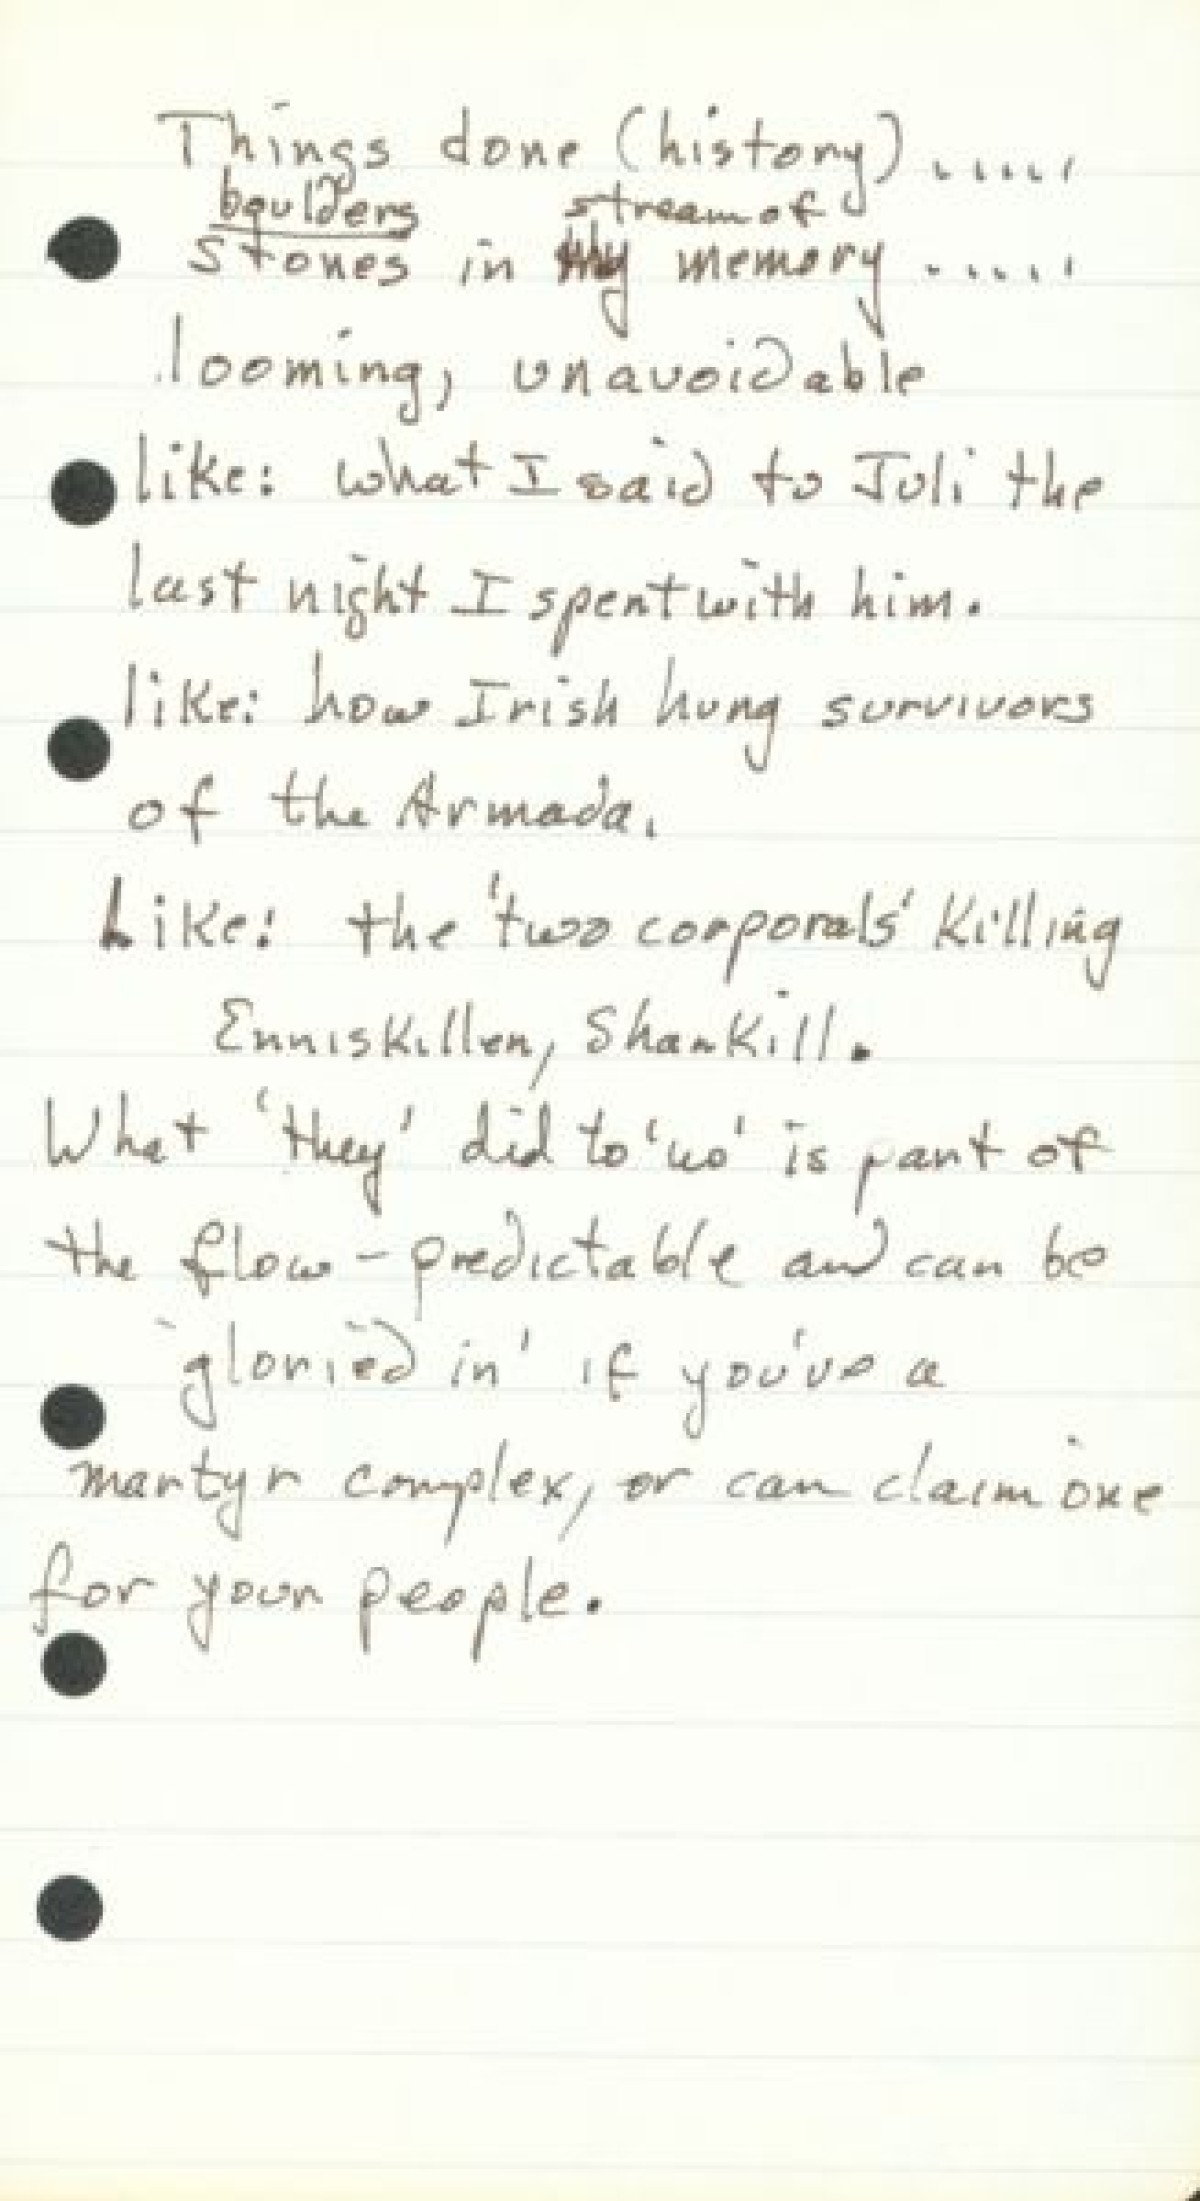 Things done (history) .....
boulders stream of
stones in my memory .....
looming, unavoidable
like: what I said to Juli the
last night I spent with him.
like: how Irish hung survivors
of the Armada.
Like: the 'two corporals' killing
Enniskillen, Shankill.
What 'they' did to 'us' is part of
the flow - predictable and can be
'gloried in' if you've a
martyr complex, or can claim one
for your people.